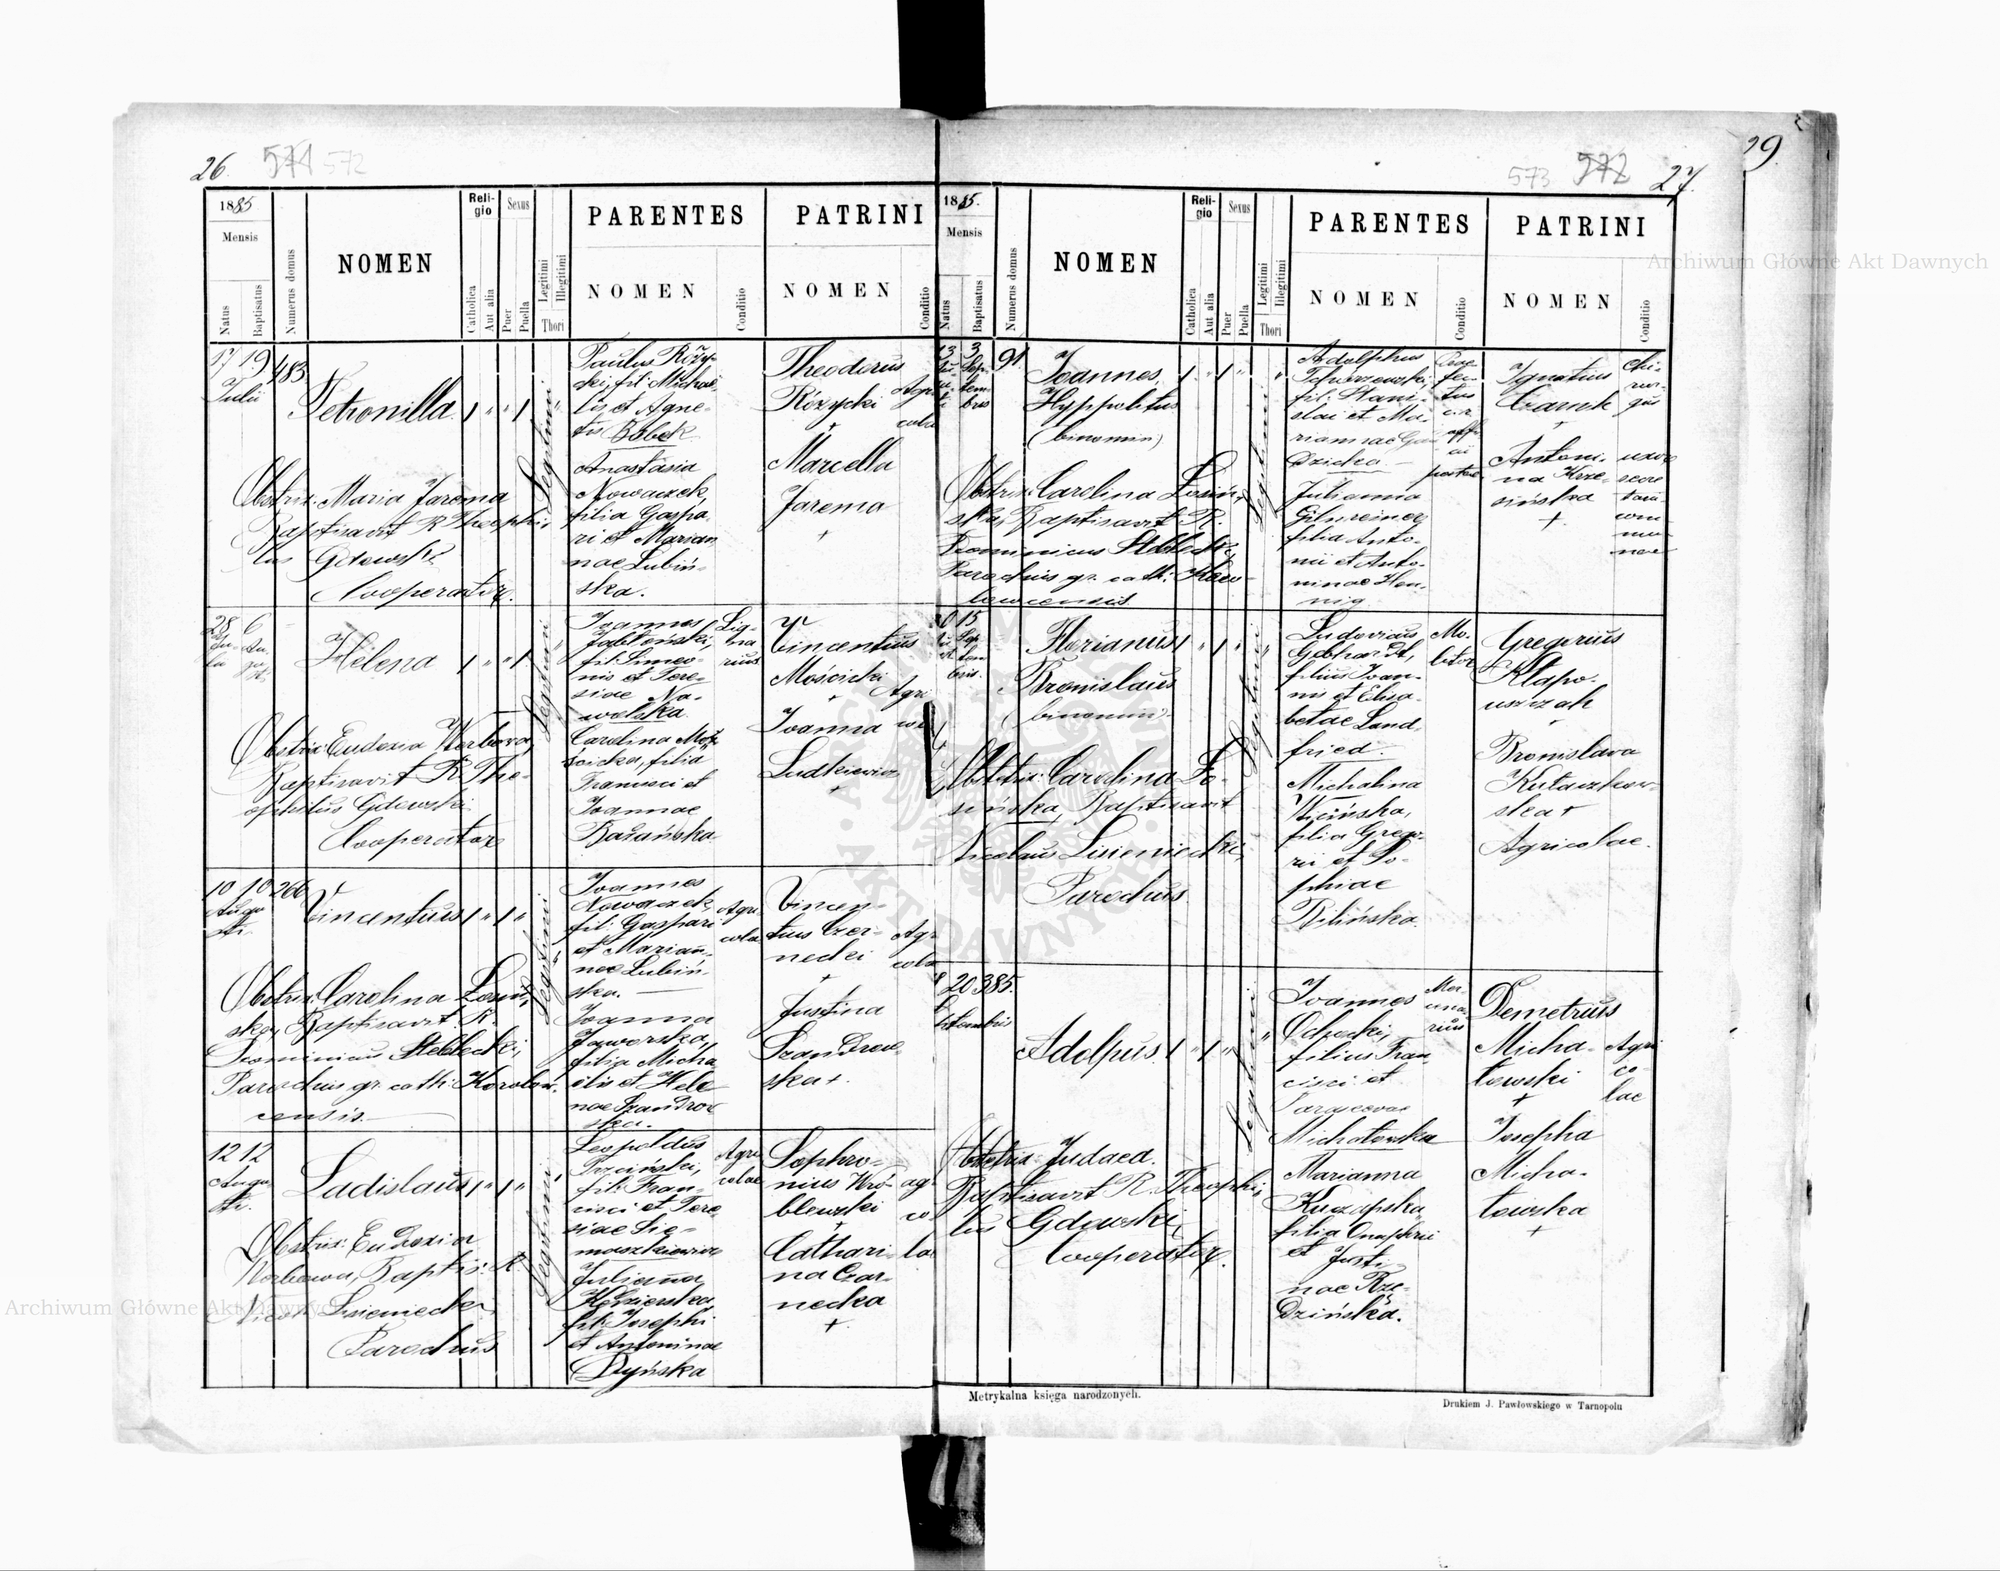 26. 571 572
1885
Mensis
Natus
Baptisatus
Numerus domus
NOMEN
Reli-
gio
Catholica
Aut alia
Sexus
Puer
Puella
Legitimi
Illegitimi
Thori
PARENTES
NOMEN
Conditio
PATRINI
NOMEN
Conditio
17 19 483
Julii
Petronilla
Obstrix: Maria Jarema
Baptisavit R. Theophi-
lus Gdowski
Cooperator.
Legitimi
Paulus Róży-
cki, fil: Michae-
lis et Agne-
tis Bobek
Anastasia
Nowaczek,
filia Gaspa-
ri et Marian
nae Lubiń-
ska.
Theodorus
Różycki Agri
+ cola
Marcella
Jarema
+
28 6
Helena
Obstrix: Eudoxia Werbowa,
Baptisavit R. The-
ophilus Gdowski
Cooperator
Legitimi
Joannes
Jabłoński,
fil: Simeo-
nis et Tere-
siae No-
wolska.
Carolina Moś-
cicka, filia
Francisci et
Joannae
Barańska
Lig-
na
rius
Vincentius
Mościcki
+ Agri
Joanna
Ludkiewicz
+
10 10 266
Augu
sti.
Vincentius
Obstrix: Carolina Łosiń-
ska, Baptisavit R.
Dominicus Steblecki,
Parochus gr. cath: Korolow-
censis.
Legitimi
Joannes
Nowaczek,
fil: Gaspari
et Mariań-
nae Lubiń-
ska.
Joanna
Jaworska,
filia Micha
elis et Hele
nae Szandrow
ska.
Agri
cola
Vincen-
tius Czer-
necki
+
Justina
Szandrow-
ska +.
Agri
cola
12 12
Augu
sti.
Ladislaus
Obstrix: Eudoxia
Werbowa, Baptis: R.
Nicol: Lisieniecki,
Parochus
Legitimi
Leopoldus
fil: Fran-
cisci et Tere
siae Sie-
maszkiewicz
Julianna,
fil: Josephi
et Antoninae
Dyńska
Agri
colae
Sophro-
nius Wró-
blewski
+
Cathari-
na Czar-
necka
+
573 572 27.
29.
1885.
Mensis
Natus
Baptisatus
Numerus domus
NOMEN
Reli-
gio
Catholica
Aut alia
Sexus
Puer
Puella
Legitimi
Illegitimi
Thori
PARENTES
NOMEN
Conditio
PATRINI
NOMEN
Conditio
13 3 91
Sep-
tem-
bris
Joannes,
Hyppolitus
(binomin)
Obstrix: Carolina Łosiń-
ska, Baptisavit R.
Dominicus Steblecki,
Parochus gr. cath: Koro-
lowcensis.
Legitimi
Adolphus
Tchorzewski,
fil: Stani-
slai et Ma-
riannae Ga
Dzicka.
Julianna
filia Anto-
nii et Anto-
ninae Hen-
nig
Prae
fec-
tus
Ignatius
Czarnk
+
Antoni-
na Krze-
sińska
+
chi-
rur-
gus
uxor
secre
tarii
com
mu-
nae
15
Sep
tem
bris.
Florianus
Bronislaus
(binomin).
Obstetrix: Carolina Ło-
sińska, Baptisavit
Nicolaus Lisieniecki,
Parochus.
Legitimi
Ludovicus
Gebhardt,
filius Joan-
nis et Elisa-
betae Land
fried.
Michalina
Wicińska,
filia Grego-
rii et So-
phiae
Bilińska.
Mo-
litor
Gregorius
Kłapo-
uszczak
+
Bronislava
Kutaczkow-
ska +
Agricolae.
20 385.
Adolpus.
Obstetrix: Judaea.
Baptisavit R. Theophi-
lus Gdowski,
Cooperator.
Legitimi
Joannes
Ochocki,
filius Fran
cisci et
Parascevae
Michałowska
Marianna
Kuczapska,
filia Onuphrii
et Justi-
nae Rze-
Dzińska.
Mer
cena
rius
Demetrius
Micha-
łowski
+
Josepha
Micha-
łowska
+
Agri
co-
lae
Metrykalna księga narodzonych.
Drukiem J. Pawłowskiego w Tarnopolu
Archiwum Główne Akt Dawnych
Archiwum Główne Akt Dawnych